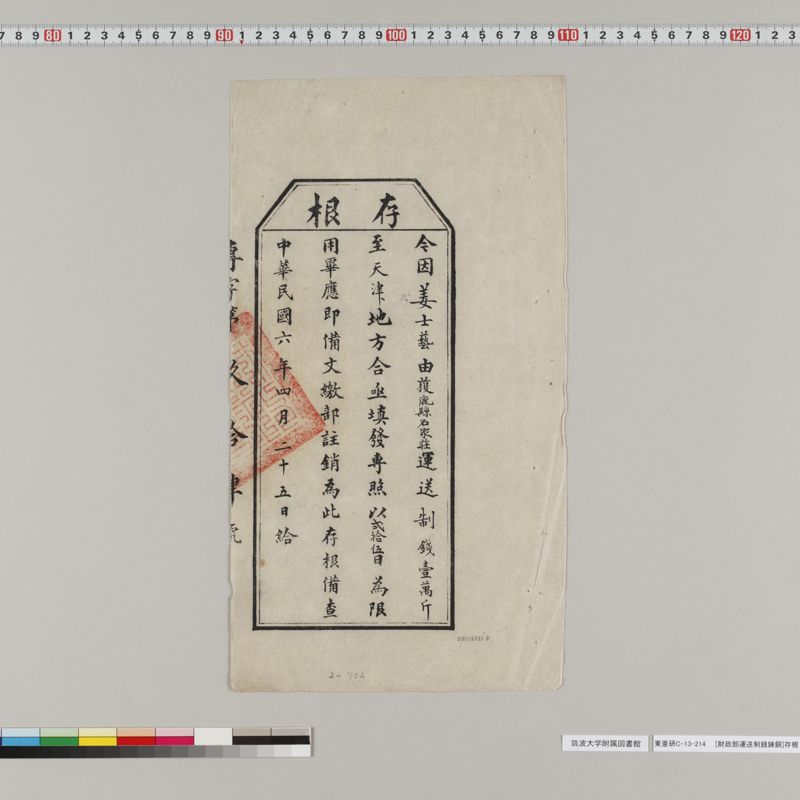 7 8 9 80 1 2 3 4 5 6 7 8 9 90 1 2 3 4 5 6 7 8 9 100 1 2 3 4 5 6 7 8 9 110 1 2 3 4 5 6 7 8 9 120 1 2 3
存根
今因姜士藝由獲鹿縣石家莊運送制錢壹萬斤
至天津地方合亟填發專照以弍拾伍日為限
用畢應即備文繳部註銷為此存根備查
中華民國六年四月二十五日給
專字第
2-702
筑波大学附属図書館
東亜研C-13-214 [財政部運送制銭錬銅]存根